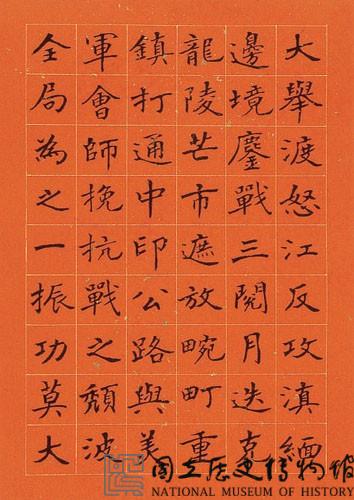 大舉渡怒江反攻滇緬
邊境鏖戰三閱月迭克
龍陵芒市遮放畹町重
鎮打通中印公路與美
軍會師挽抗戰之頹波
全局為之一振功莫大
國立歷史博物館
NATIONAL MUSEUM OF HISTORY